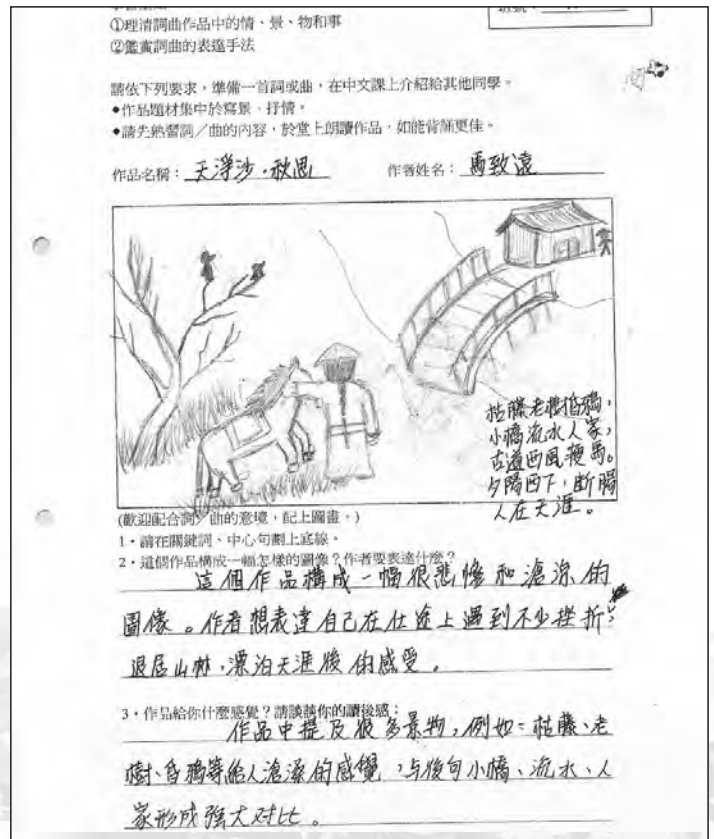 ①理清詞曲作品中的情、景、物和事
②鑑賞詞曲的表達手法
請依下列要求，準備一首詞或曲，在中文課上介紹給其他同學。
◆作品題材集中於寫景、抒情。
◆請先熟習詞／曲的內容，於堂上朗讀作品，如能背誦更佳。
作品名稱：天淨沙．秋思 作者姓名：馬致遠
枯藤老樹昏鴉，
小橋流水人家，
古道西風瘦馬。
夕陽西下，斷腸
人在天涯。
(歡迎配合詞／曲的意境，配上圖畫。)
1．請在關鍵詞、中心句劃上底線。
2．這個作品構成一幅怎樣的圖像？作者要表達什麼？
這個作品構成一幅很悲慘和滄涼的
圖像。作者想表達自己在仕途上遇到不少挫折，
退居山林，漂泊天涯後的感受。
3．作品給你什麼感覺？請談談你的讀後感：
作品中提及很多景物，例如：枯藤、老
樹、昏鴉等給人滄桑的感覺，与後句小橋、流水、人
家形成強大对比。